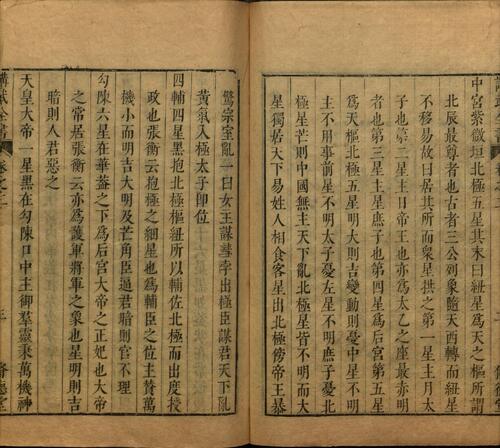 中宮紫微垣北極五星其末曰紐星爲天之樞所謂
北辰最尊者也古者三公列象隨天西轉而紐星
不移易故曰居其所而衆星拱之第一星主月太
子也第二星主日帝王也亦爲太乙之座最赤明
者也第三星主星庶子也第四星爲后宮第五星
爲天樞北極五星明大則吉變動則憂中星不明
主不用事前星不明太子憂左星不明庶子憂北
極星芒則中國無主天下亂北極星皆不明而天
星獨居天下易姓人相食客星出北極傍帝王暴
驚宗室亂一曰女王謀彗孛出極臣謀君天下亂
黃氣入極太子即位
四輔四星黑抱北極樞紐所以輔佐北極而出度授
政也張衡云抱極之細星也爲輔臣之位主贊萬
機小而明吉大明及芒角臣逼君暗則官不理
勾陳六星在華蓋之下爲后宮大帝之正妃也大帝
之常居張衡云亦爲護軍將軍之象也星明則吉
暗則人君惡之
天皇大帝一星黑在勾陳口中主御羣靈秉萬機神
全書 卷之二 三